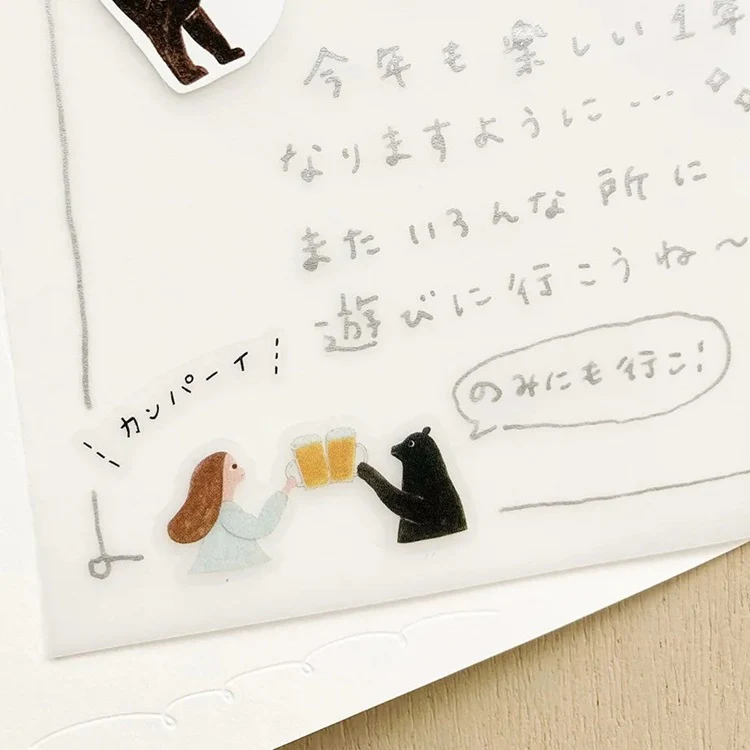 今年も楽しい1年
なりますように…
またいろんな所に
遊びに行こうね〜
のみにも行こ!
カンパーイ